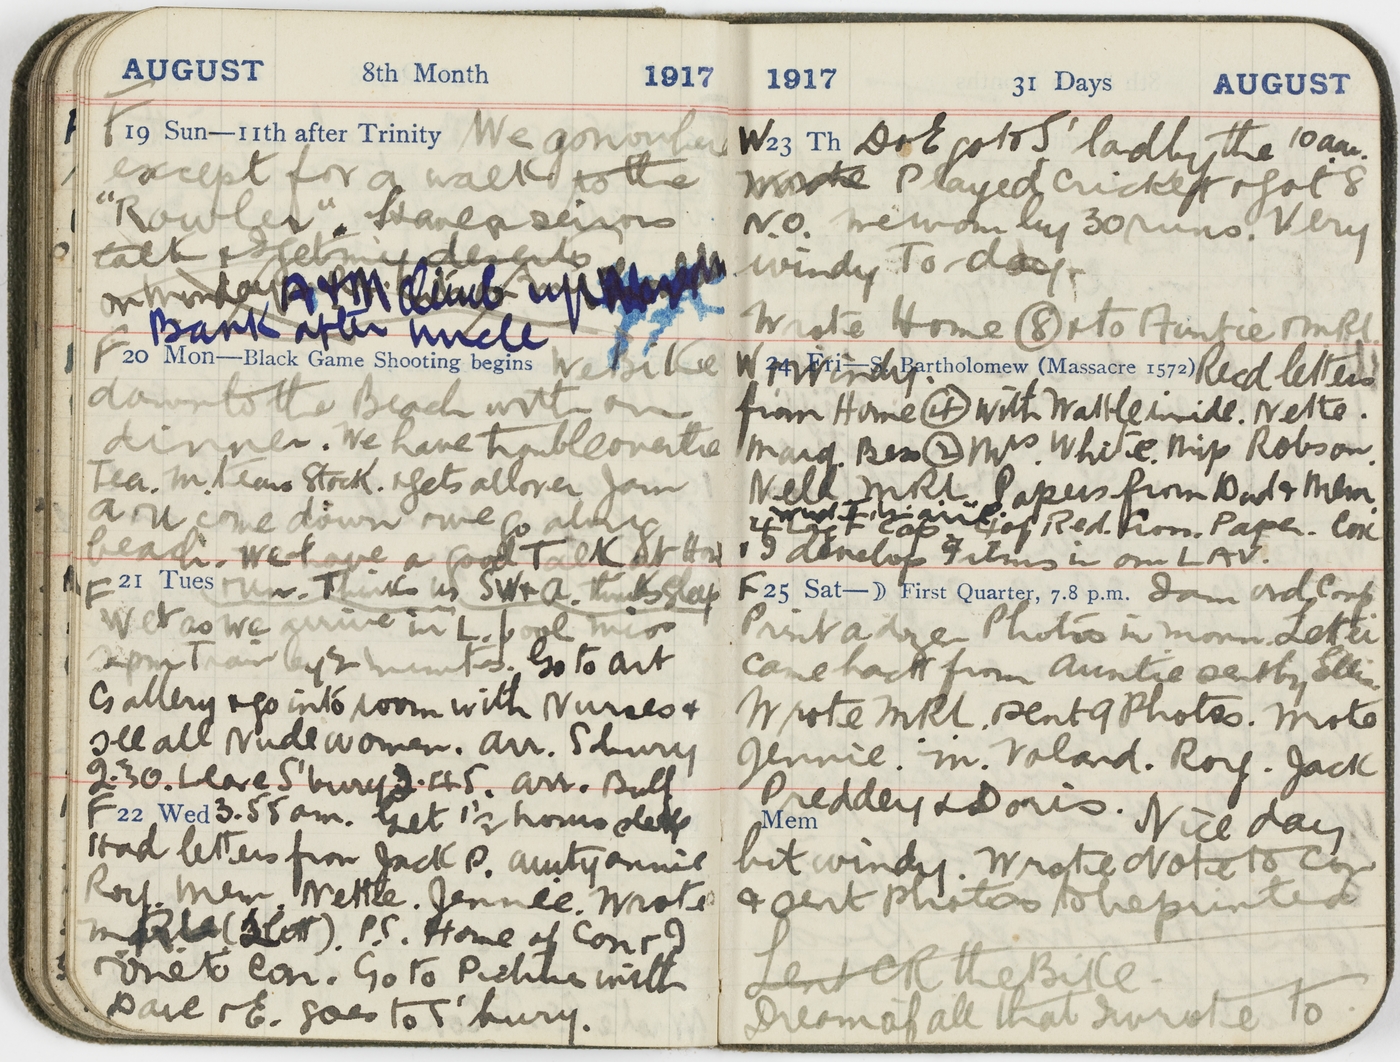 AUGUST 8th Month 1917
F
19 Sun—11th after Trinity We go nowhere
except for a walk to the
"Rowler". Have a serious
talk & get my deserts
on Monday A & M climb up
Bank after Uncle
F
20 Mon—Black Game Shooting begins We Bike
down to the Beach with our
dinner. We have trouble over the
Tea. M. tears Stock. & gets all over Jam
A & U come down & we go along
beach. We have a good Talk at Hou
F 21 Tues run. Thinks us SW & A. thinks Sleep
Wet as we arrive in L.pool miss
2 pm Train by 2 minutes. Go to Art
Gallery & go into room with Nurses &
see all Nude women. Arr. S'bury
9.30. Leave S'bury 2.45. arr. Bulf
F 22 Wed 3.55 am. Get 1½ hours sleep
Had letters from Jack P. Aunty Annie
Roy. Mem. Nettie. Jennie. Wrote
(Scott). P.S. Home of Con & J
& one to Con. Go to Pictures with
Dave & E. goes to S'bury.
1917 31 Days AUGUST
W 23 Th D & E go to S' lad by the 10 am.
Wrote Played Cricket & got 8
N.O. we won by 30 runs. Very
windy To-day.
Wrote Home (8) & to Auntie & MRL
W 24 Fri—S. Bartholomew (Massacre 1572) Recd letters
Windy.
from Home (4) with Wattle inside. Nette.
Marg. Bess (2) Mrs. White. Miss Robson.
Nell MRL. Papers from Dad & Mem.
Cap. of Red. Com. Paper. Con
& I develop 9 films in our LAV.
F 25 Sat—☽ First Quarter, 7.8 p.m. I am ord. Corp
Print a dozen Photos in morn. Letter
came back from Auntie sent by Ellis
Wrote MRL. sent 9 Photos. Wrote
Jennie. M. Voland. Roy. Jack
Preddey & Doris.
Mem Nice day
but windy. Wrote Note to Con
& sent Photos to be printed
Lent CR the Bike.
Dream of all that I wrote to